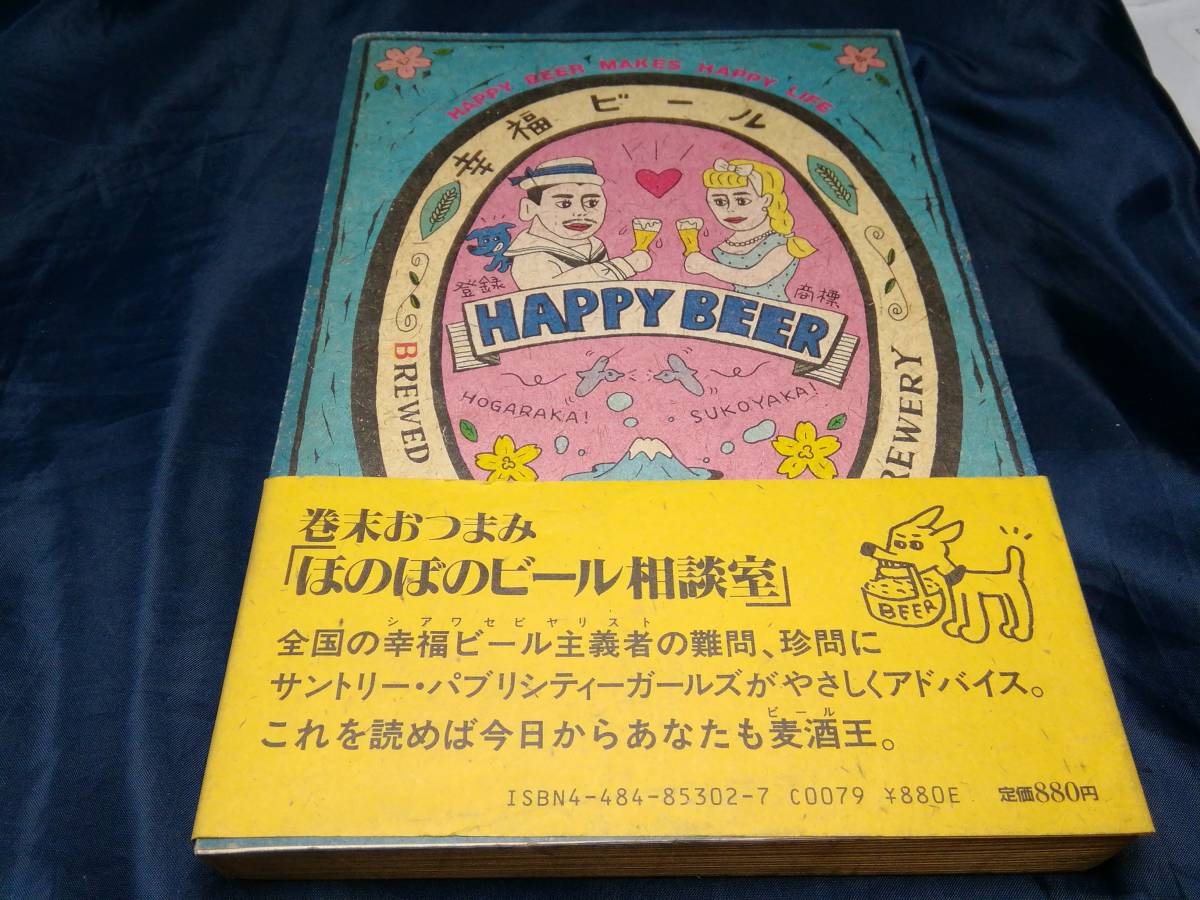 HAPPY BEER MAKES HAPPY LIFE
幸福ビール
登録 商標
HAPPY BEER
HOGARAKA! SUKOYAKA!
BREWED
REWERY
巻末おつまみ
「ほのぼのビール相談室」
シアワセビヤリスト
全国の幸福ビール主義者の難問、珍問に
サントリー・パブリシティーガールズがやさしくアドバイス。
ビール
これを読めば今日からあなたも麦酒王。
BEER
ISBN4-484-85302-7 C0079 ¥880E 定価880円